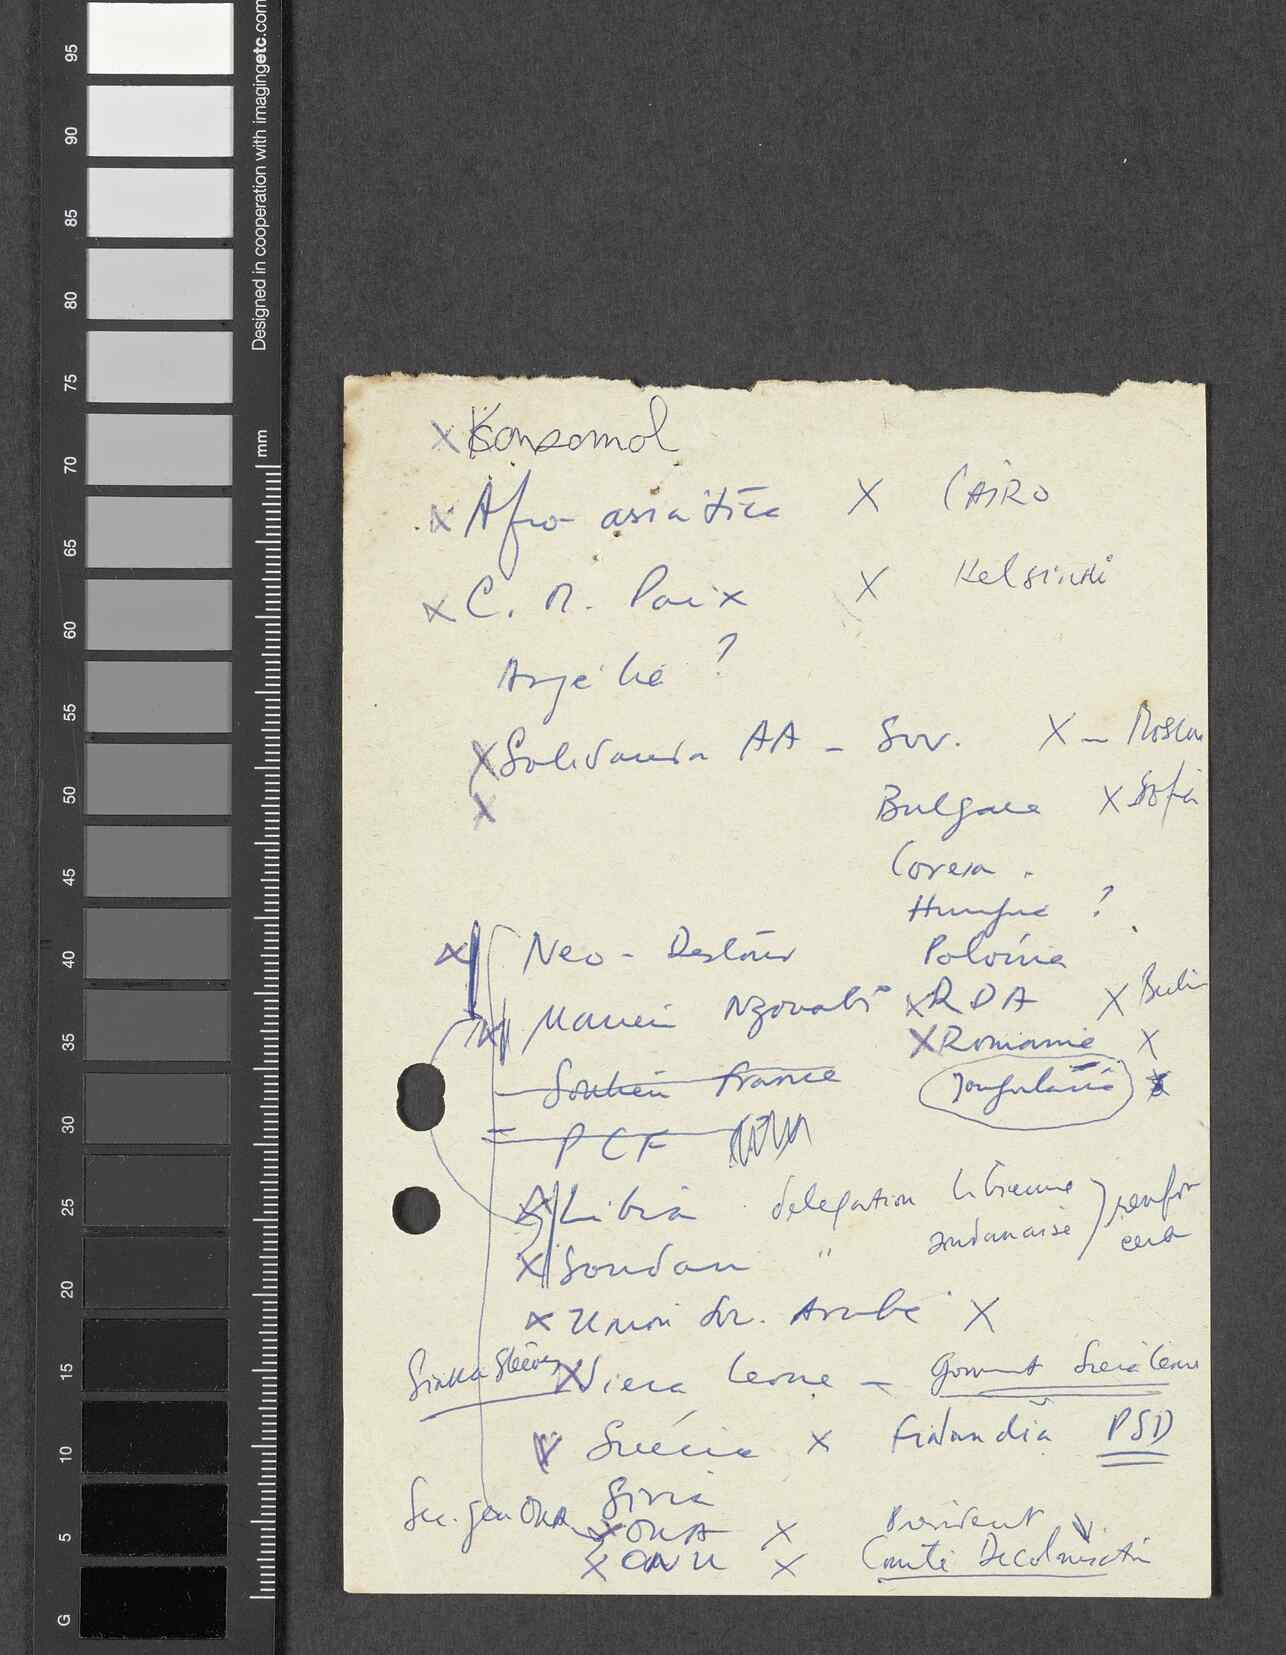 95
90
85
80
75
70
65
60
55
50
45
40
35
30
25
20
15
10
5
G
Designed in cooperation with imagingetc.com
mm
x Konsomol
x Afro-asiática X CAIRO
x C. M. Paix X Helsinki
Argélie ?
X Solidarieda AA - Sov. X - Moscou
X Bulgare X Sofia
Coreia.
Hungrie ?
x Neo-Destour Polónia
x Nzouabi x RDA X Berlin
X Romanie X
Soutien France Jougoslavia x
PCF
X Libia delegation libienne
X Soudan " soudanaise
x Union Soc. Arabe X
Siaka Steeves X Siera Leone - Govmnt Siera Leone
Suécia X Finlandia PSD
Siria
Sec. gen OUA x OUA X President
x ONU X Comité Decolonisation